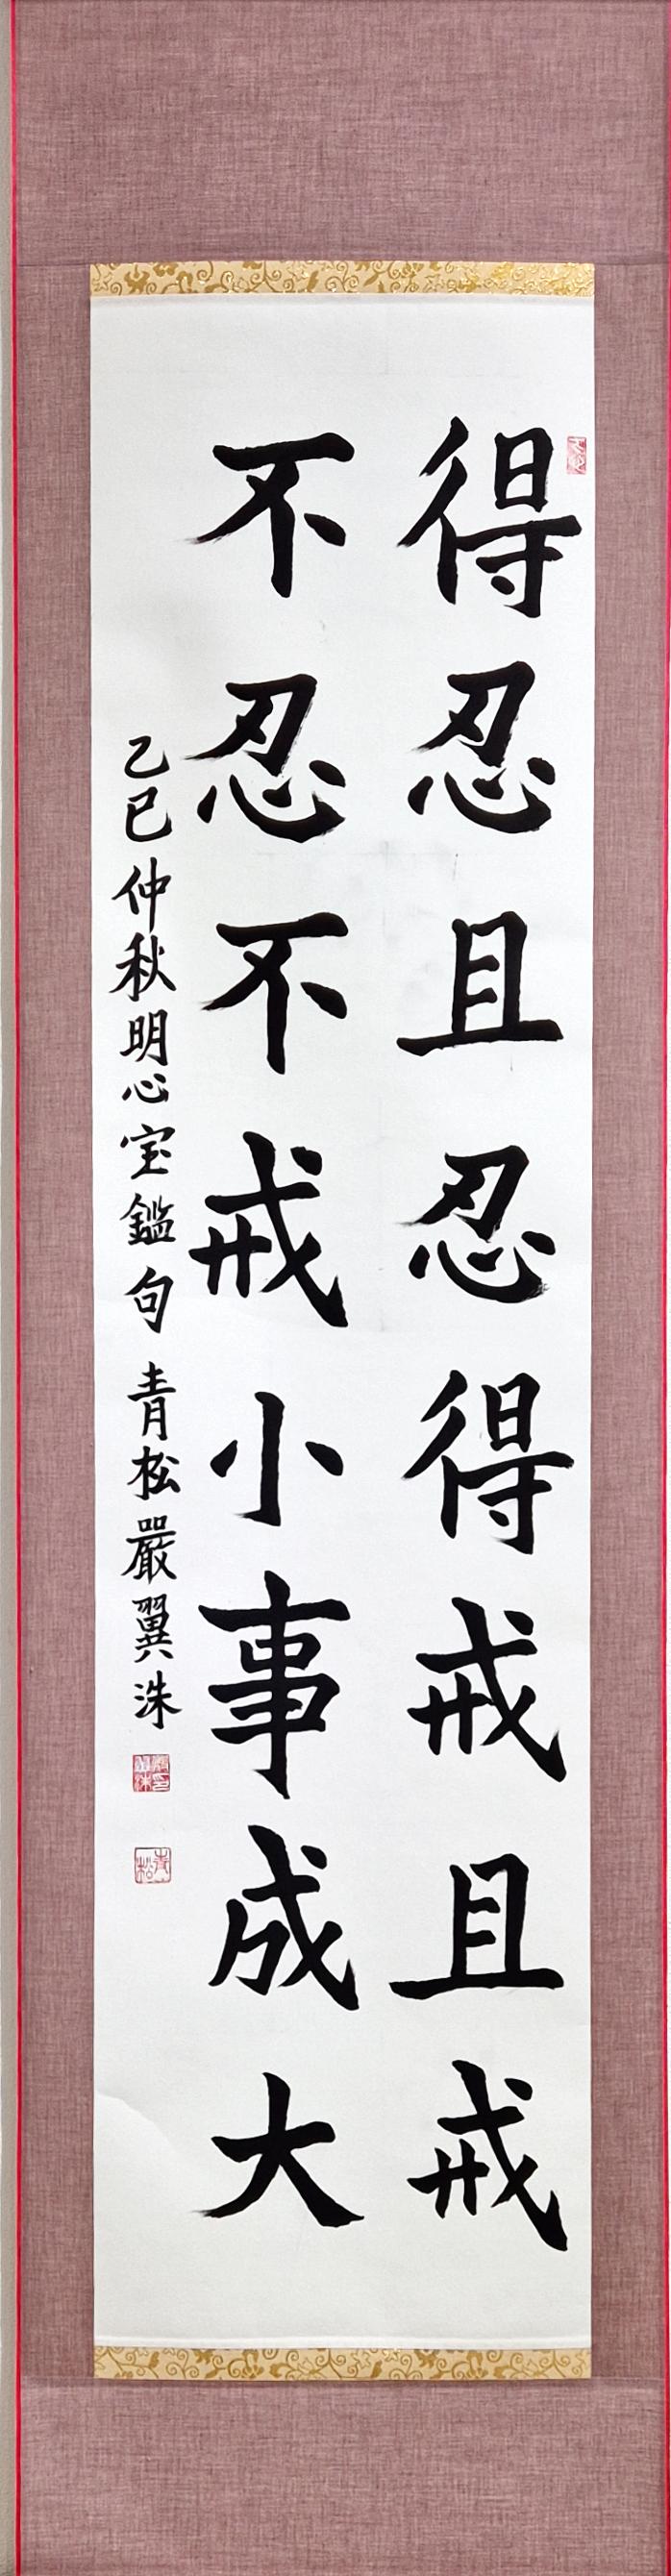 得忍且忍得戒且戒
不忍不戒小事成大
乙巳仲秋明心宝鑑句 青松嚴翼洙
青松